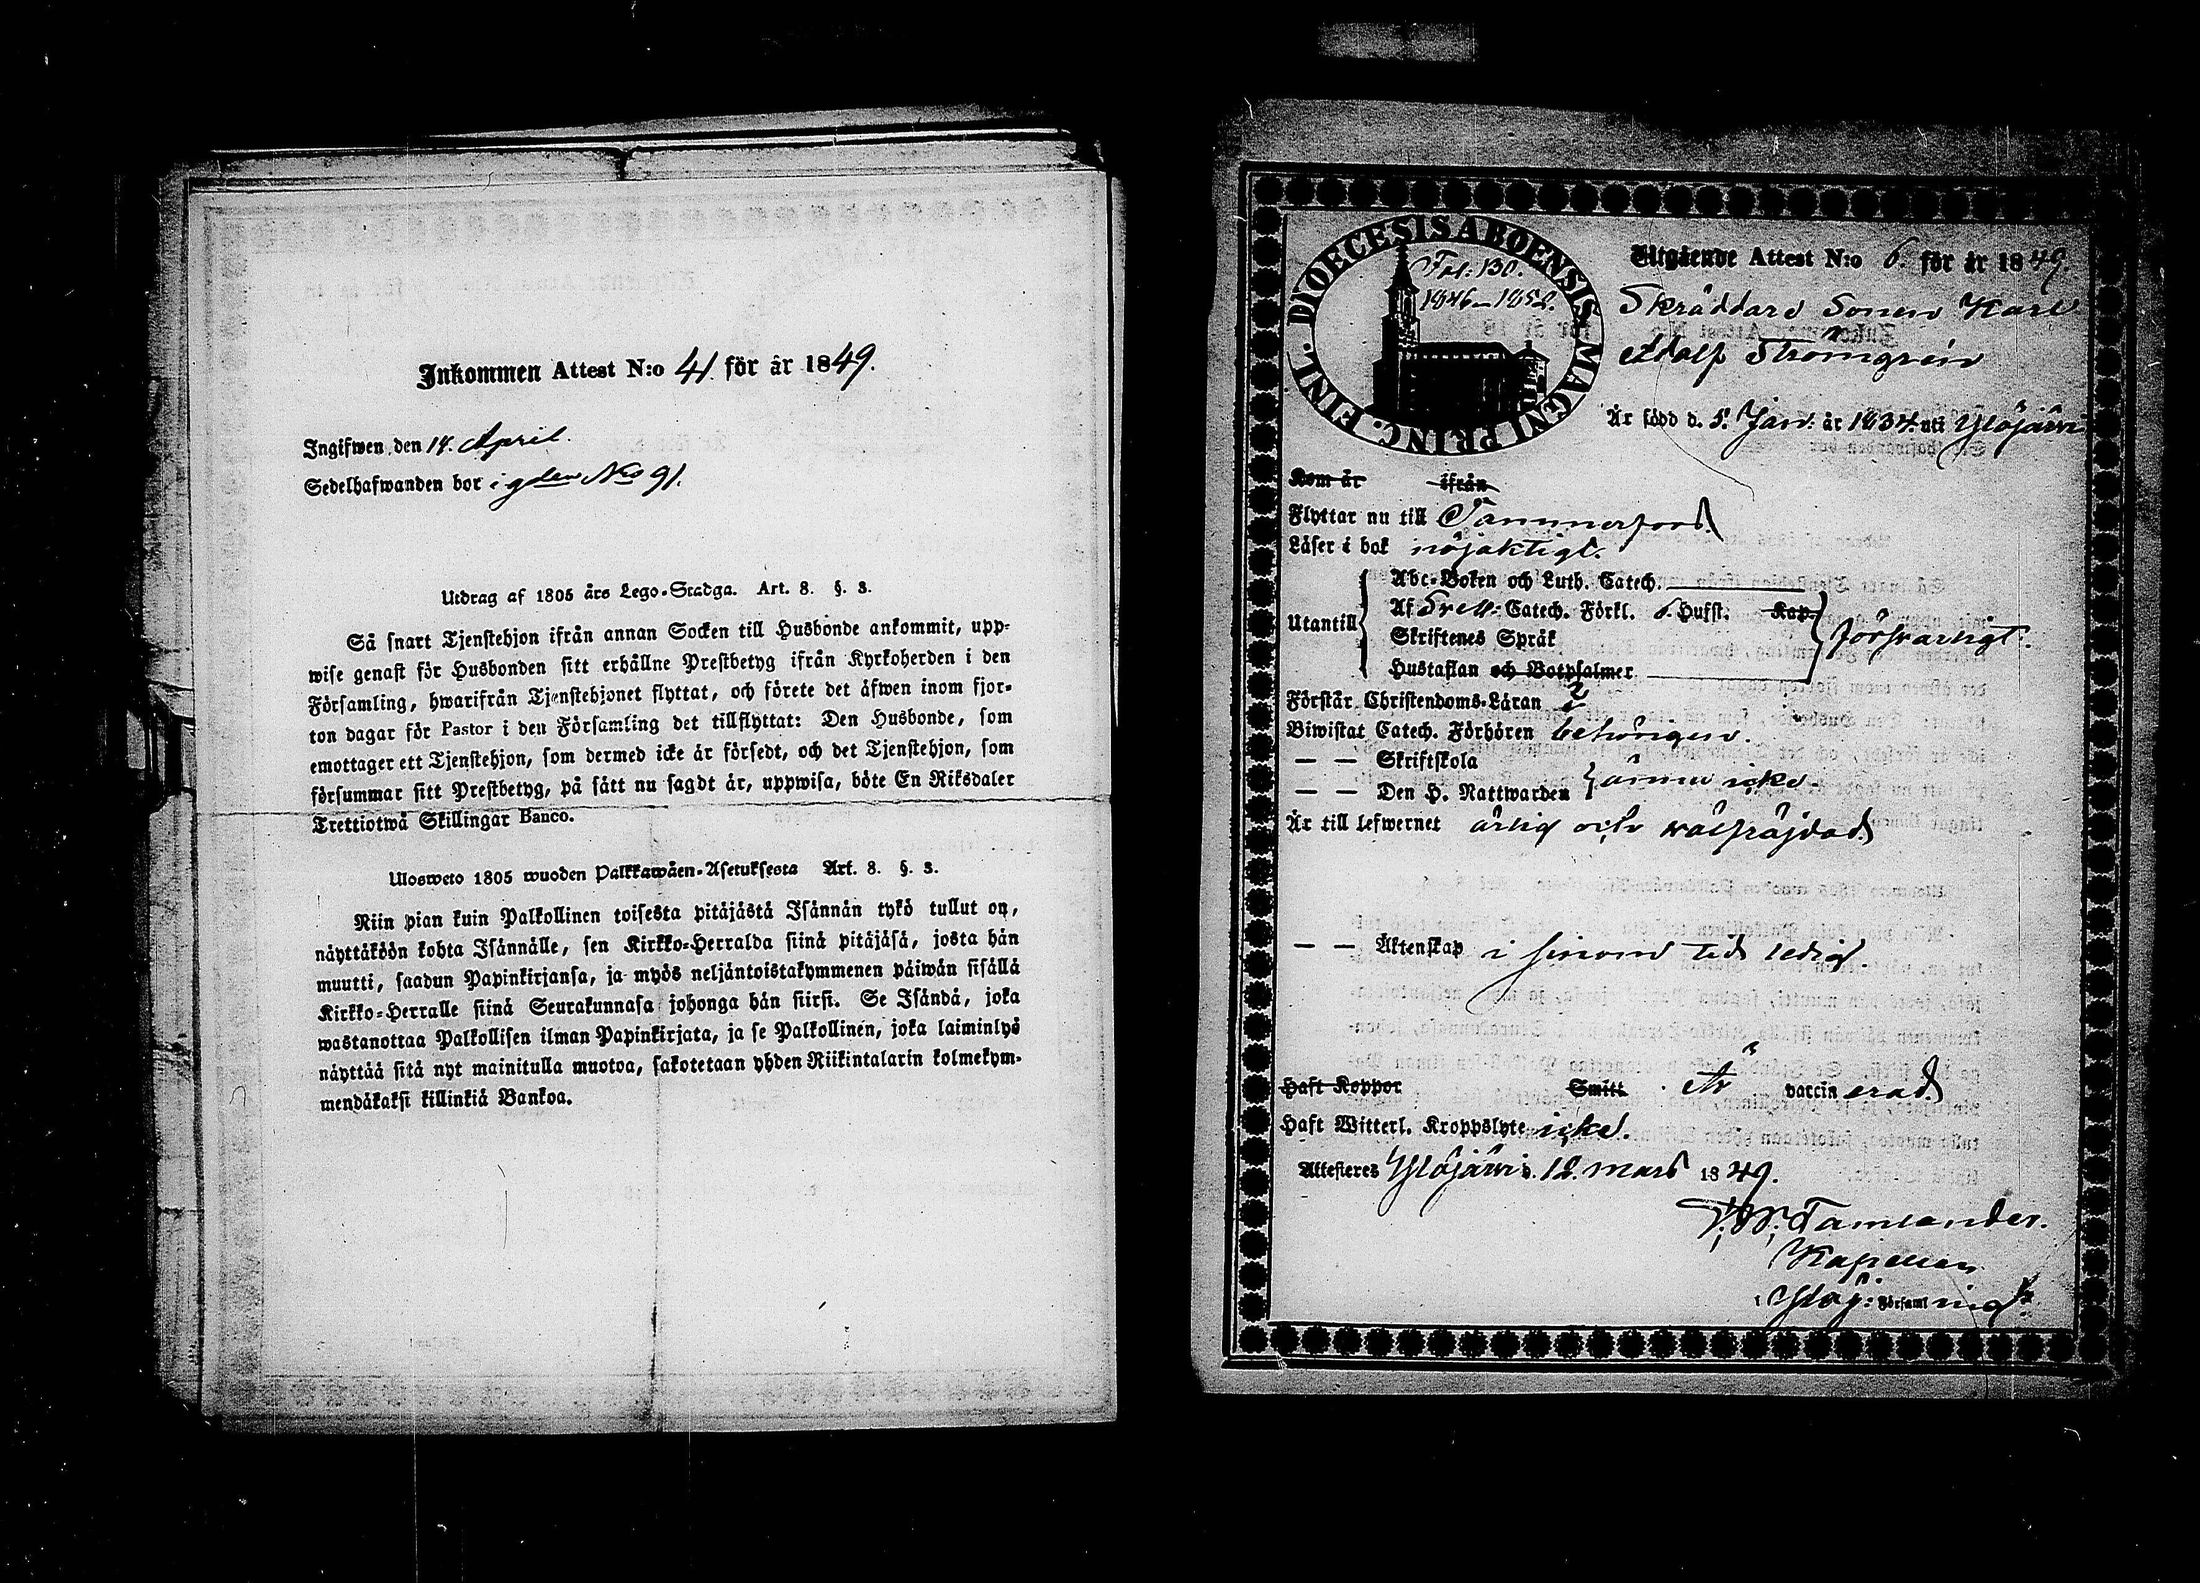 Inkommen Attest N:o 41. för år 1849.
Ingifwen den 14. April.
Sedelhafwanden bor i gden No 91.
Utdrag af 1805 års Lego-Stadga. Art. 8. §. 3.
Så snart Tjenstehjon ifrån annan Socken till Husbonde ankommit, upp-
wise genast för Husbonden sitt erhållne Prestbetyg ifrån Kyrkoherden i den
Församling, hwarifrån Tjenstehjonet flyttat, och förete det äfwen inom fjor-
ton dagar för Pastor i den Församling det tillflyttat: Den Husbonde, som
emottager ett Tjenstehjon, som dermed icke är försedt, och det Tjenstehjon, som
försummar sitt Prestbetyg, på sätt nu sagdt är, uppwisa, böte En Riksdaler
Trettiotwå Skillingar Banco.
Ulosweto 1805 wuoden Palkkawäen-Asetuksesta Art. 8. §. 3.
Niin pian kuin Palkollinen toisesta pitäjästä Isännän tykö tullut on,
näyttäköön kohta Isännälle, sen Kirkko-Herralda siinä pitäjäsä, josta hän
muutti, saadun Papinkirjansa, ja myös neljäntoistakymmenen päiwän sisällä
Kirkko-Herralle siinä Seurakunnasa johonga hän siirsi. Se Isändä, joka
wastanottaa Palkollisen ilman Papinkirjata, ja se Palkollinen, joka laiminlyö
näyttää sitä nyt mainitulla muotoa, sakotetaan yhden Riikintalarin kolmekym-
mendäkaksi killinkiä Bankoa.
DIOECESIS ABOENSIS MAGNI PRINC. FINL.
Fol: 130.
1846–1852.
Utgående Attest N:o 6. för år 1849.
Skräddare Sonen Karl
Adolf Strömgren
Är född d. 5. Jan: år 1834 uti Ylöjärvi
Kom år ifrån
Flyttar nu till Tammerfors.
Läser i bok nöjaktigt.
Utantill
Abc-Boken och Luth. Catech.
Af Catech. Förkl. 6 Hufst. Kap.
Skriftenes Språk
Hustaflan och Botpsalmer
försvarligt.
Förstår Christendoms-Läran
Biwistat Catech. Förhören behörigen.
— — Skriftskola
— — Den H. Nattwarden ännu icke.
Är till lefwernet ärlig och välfräjdad.
— — Äktenskap i sinom tid ledig.
Haft Koppor Smitt. Är vaccinerad.
Haft Witterl. Kroppslyte icke.
Attesteres Ylöjärvi d. 12. mars 1849.
Tamlander.
Kapellan
i Ylöj: Församling